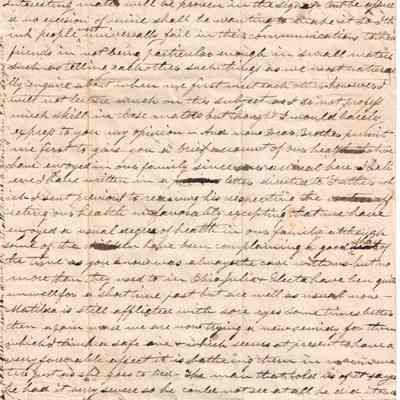 interesting matter will be proven in the sequel but be assured
no exertion of mine shall be wanting to make it so I th
ink people universally fail in their communications to their
friends in not being particular enough in small matters
such as telling each other such things as we most natural
ly enquire about when we first meet each other however I
will not lecture much on this subject as I do not profess
much skill in these matters but thought I would barely
express to you my opinion — And now Dear Brother permit
me first to give you a brief account of our health which
have enjoyed in our family since our arrival here I beli
eve I have written in a letter directed to Father wh
ich I sent previous to receiving his respecting the
ecting our health unfavorably excepting that we have
enjoyed a usual degree of health in our family although
some of the children have been complaining a good
the time as you know was always the case with us but no
more than they used to in Ohio Julia & Electa have been quite
unwell for a short time past but are well as usual now —
Matilda is still afflicted with sore eyes sometimes better
then again worse we are now trying a new remidy for them
which I think a safe one & which seems at present to have a
very favorable effect it is bathing them in
just as she goes to bed — The man that told us of it says
he had it very severe so he could not see at all he did it one